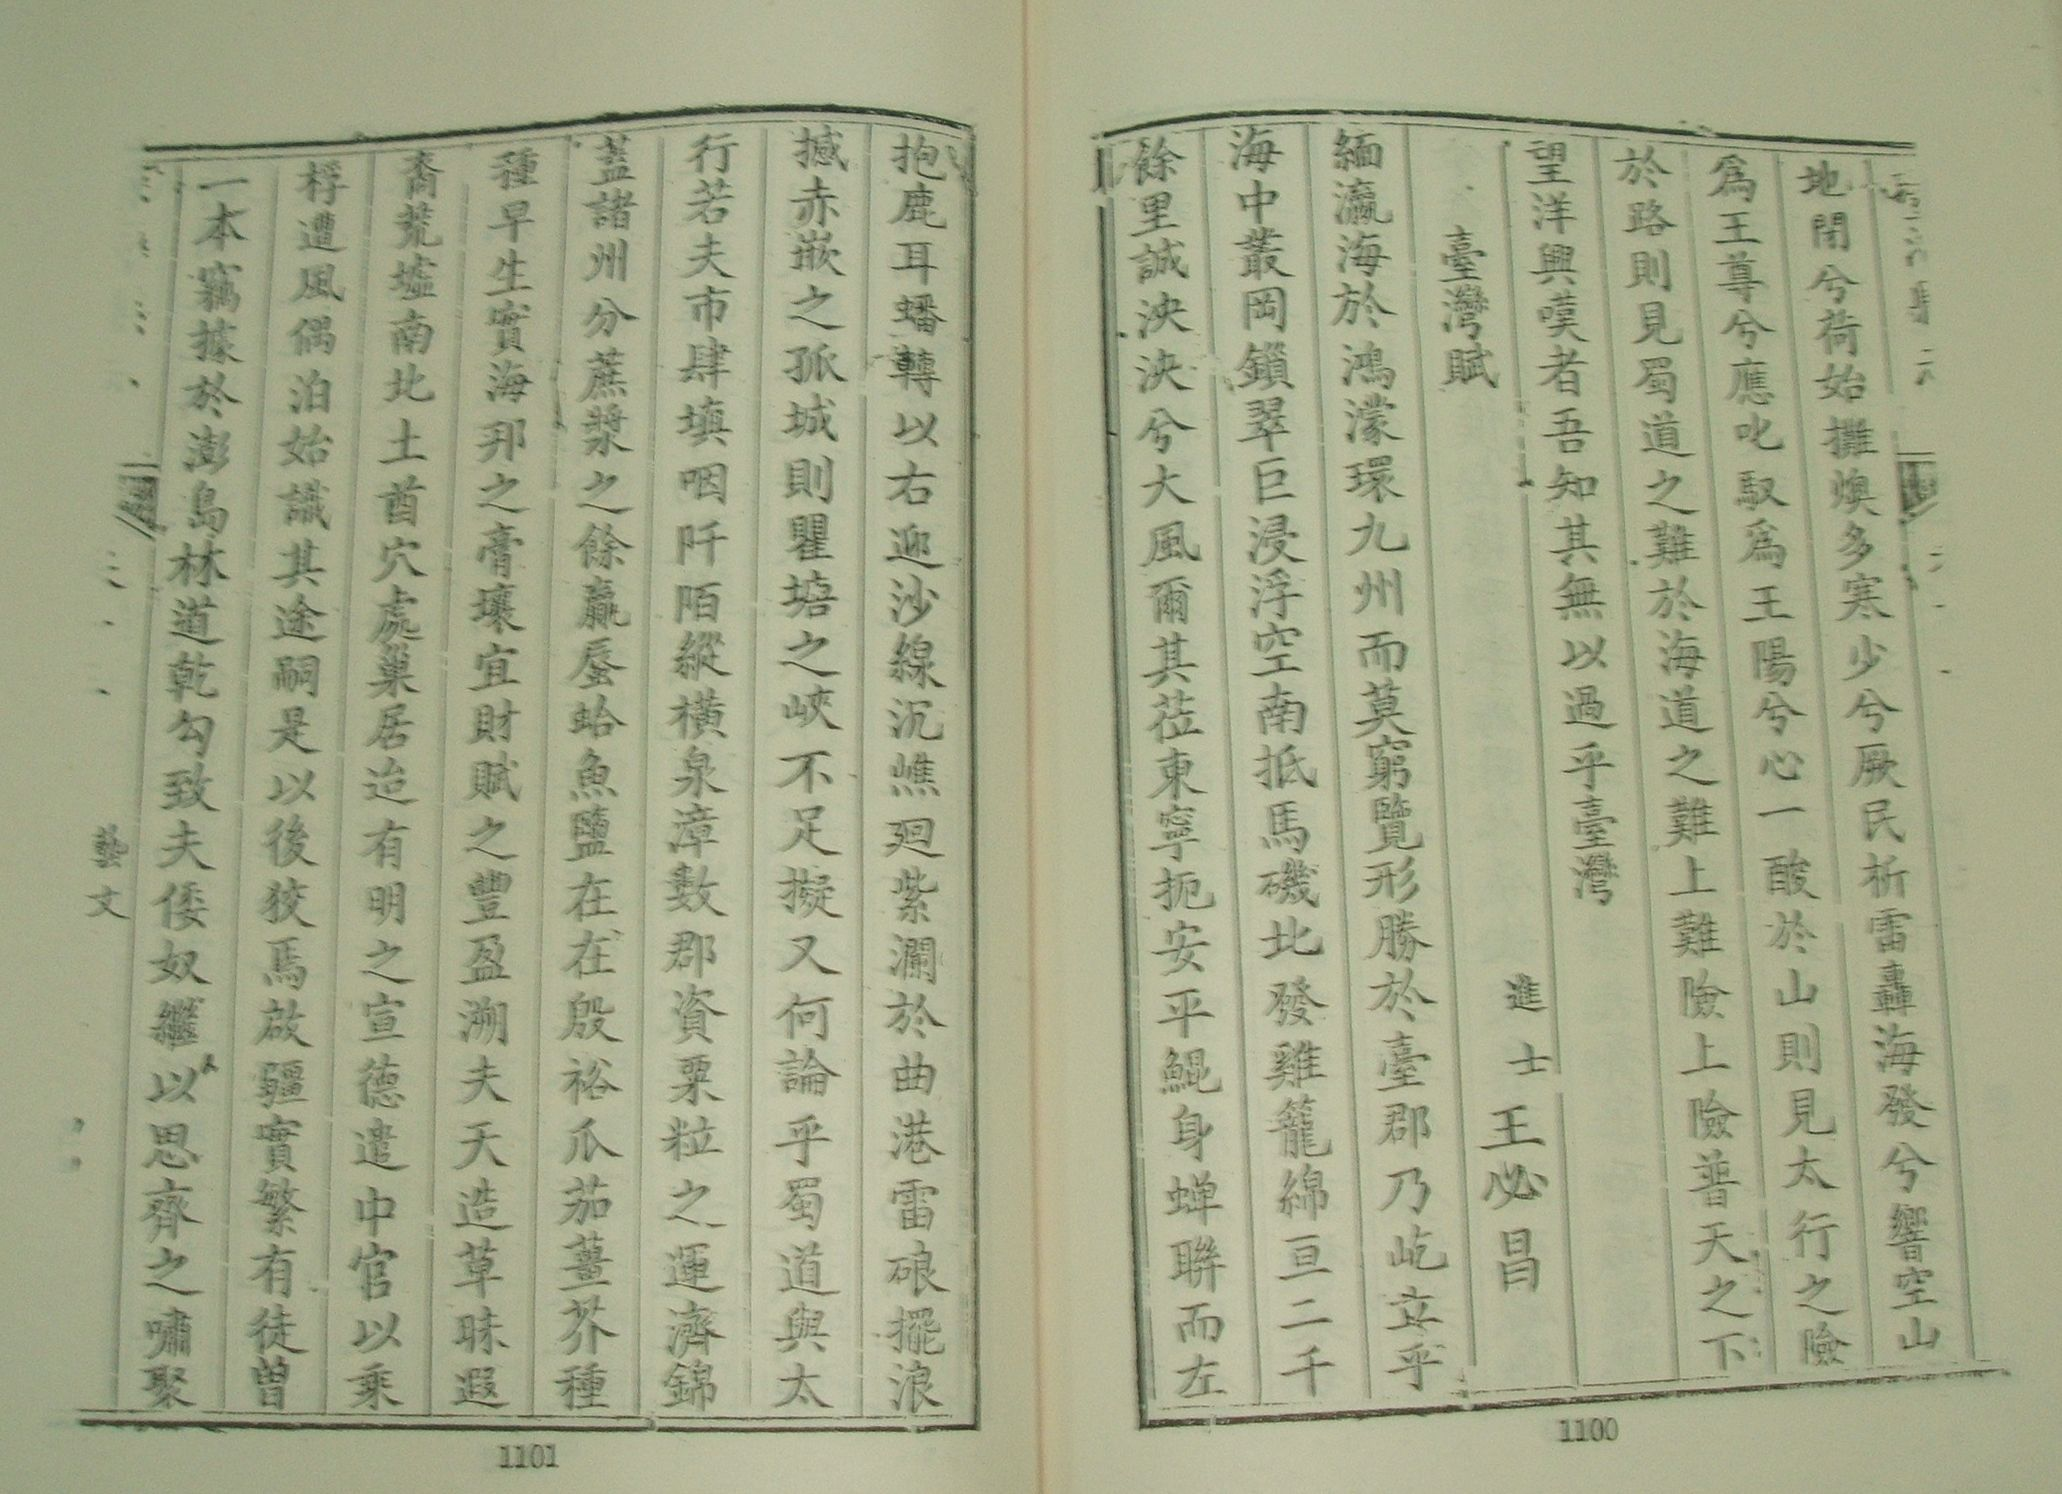 地閉兮荷始攤燠多寒少兮厥民析雷轟海發兮響空山
爲王尊兮應叱馭爲王陽兮心一酸於山則見太行之險
於路則見蜀道之難於海道之難上難險上險普天之下
望洋興嘆者吾知其無以過乎臺灣
臺灣賦
進士王必昌
緬瀛海於鴻濛環九州而莫窮覽形勝於臺郡乃屹立乎
海中叢岡鎖翠巨浸浮空南抵馬磯北發雞籠綿亘二千
餘里誠泱泱兮大風爾其莅東寧扼安平鯤身蟬聯而左
1100
抱鹿耳蟠轉以右迎沙線沉礁廻紫瀾於曲港雷硠擺浪
撼赤嵌之孤城則瞿塘之峽不足擬又何論乎蜀道與太
行若夫市肆填咽阡陌縱橫泉漳數郡資粟粒之運濟錦
蓋諸州分蔗漿之餘贏蜃蛤魚鹽在在殷裕瓜茄薑芥種
種早生實海邦之膏壤宜財賦之豐盈溯夫天造草昧遐
裔荒墟南北土酋穴處巢居迨有明之宣德遣中官以乘
桴遭風偶泊始識其途嗣是以後狡焉啟疆實繁有徒曾
一本竊據於澎島林道乾勾致夫倭奴繼以思齊之嘯聚
藝文
1101